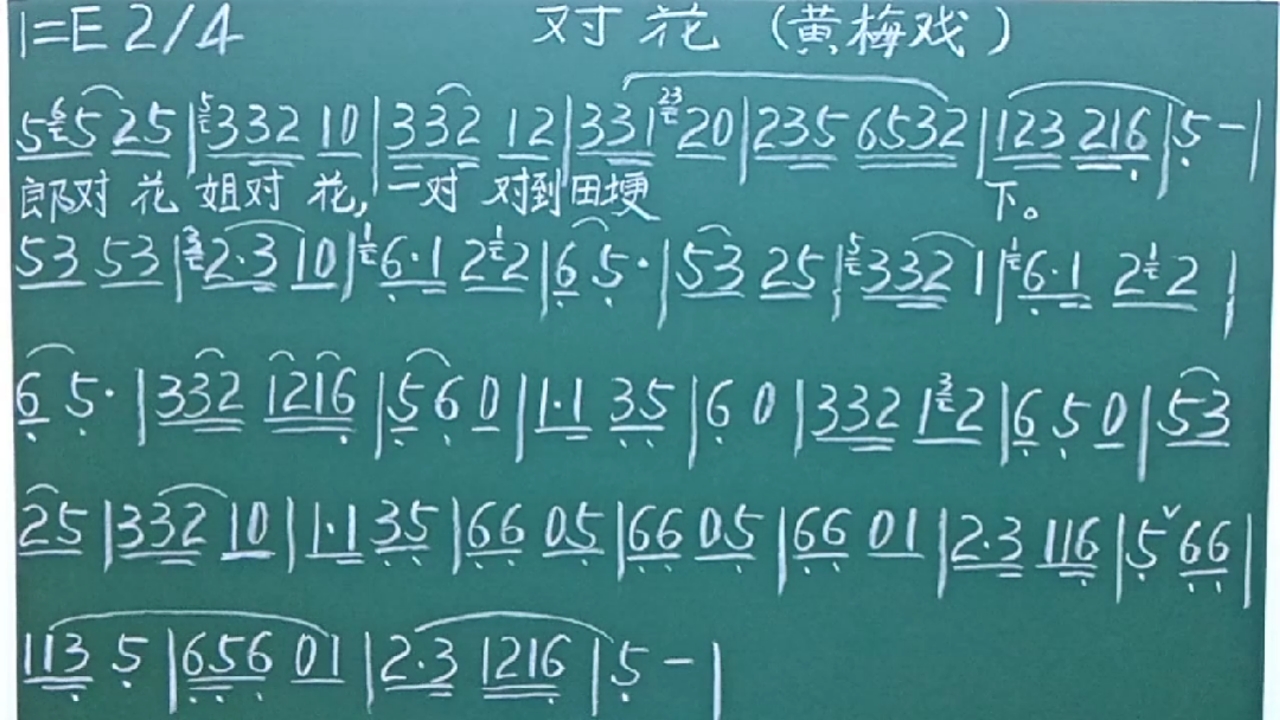 1=E 2/4 对花（黄梅戏）
5 6 5 25 | 5 332 10 | 332 12 | 331 23 20 | 235 6532 | 123 216 | 5 - |
郎对 花 姐对 花,一对 对到田埂 下。
53 53 | 3 2·3 10 | 1 6·1 2 1 2 | 6 5· | 53 25 | 5 332 1 | 1 6·1 2 1 2 |
6 5· | 332 1216 | 56 0 | 1·1 35 | 6 0 | 332 1 3 2 | 6 5 0 | 53
25 | 332 10 | 1·1 35 | 66 05 | 66 05 | 66 01 | 2·3 116 | 5 ˇ 66 |
113 5 | 656 01 | 2·3 1216 | 5 - |